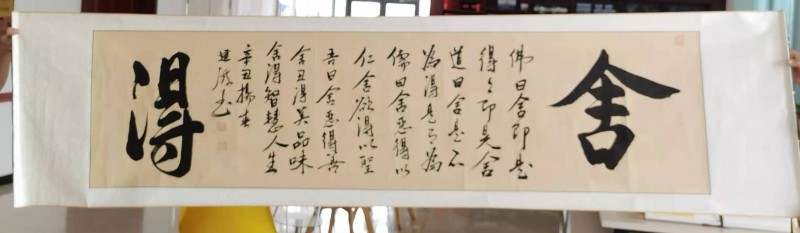 舍
佛曰舍即是
得々即是舍
道曰舍是不
為得是有為
儒曰舍惡得以
仁舍欲得以聖
吾曰舍惡得善
舍丑得美品味
舍得智慧人生
辛丑
建书
得